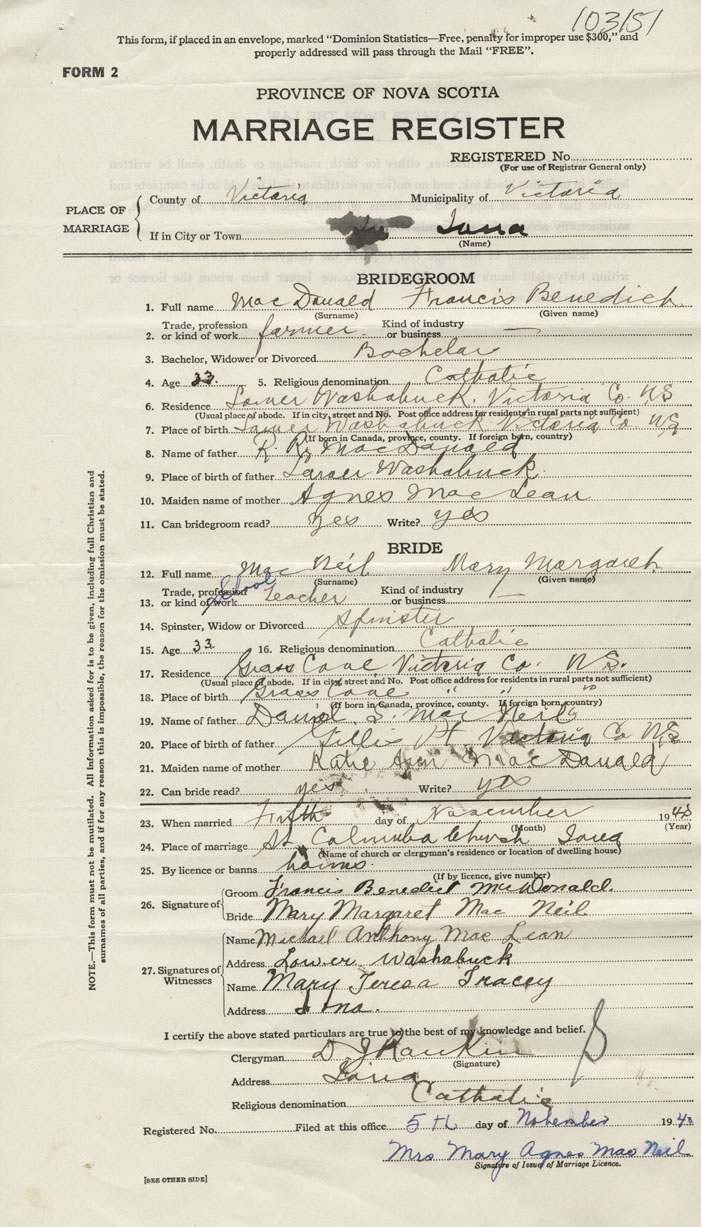 103151
This form, if placed in an envelope, marked "Dominion Statistics—Free, penalty for improper use $300," and
properly addressed will pass through the Mail "FREE".
FORM 2
PROVINCE OF NOVA SCOTIA
MARRIAGE REGISTER
REGISTERED No.
(For use of Registrar General only)
PLACE OF MARRIAGE
County of Victoria Municipality of Victoria
If in City or Town Iona
(Name)
BRIDEGROOM
1. Full name MacDonald Francis Benedict
(Surname) (Given name)
2. Trade, profession or kind of work farmer Kind of industry or business —
3. Bachelor, Widower or Divorced Bachelor
4. Age 33 5. Religious denomination Catholic
6. Residence Lower Washabuck, Victoria Co. N.S.
(Usual place of abode. If in city, street and No. Post office address for residents in rural parts not sufficient)
7. Place of birth Lower Washabuck Victoria Co. N.S.
(If born in Canada, province, county. If foreign born, country)
8. Name of father R. R. MacDonald
9. Place of birth of father Lower Washabuck
10. Maiden name of mother Agnes MacLean
11. Can bridegroom read? Yes Write? yes
BRIDE
12. Full name MacNeil Mary Margaret
(Surname) (Given name)
13. Trade, profession or kind of work School Teacher Kind of industry or business —
14. Spinster, Widow or Divorced Spinster
15. Age 33 16. Religious denomination Catholic
17. Residence Grass Cove Victoria Co. N.S.
(Usual place of abode. If in city, street and No. Post office address for residents in rural parts not sufficient)
18. Place of birth Grass Cove " " "
(If born in Canada, province, county. If foreign born, country)
19. Name of father Daniel S. MacNeil
20. Place of birth of father Gillis Pt Victoria Co N.S.
21. Maiden name of mother Katie Ann MacDonald
22. Can bride read? yes Write? yes
23. When married day of November 1943
(Month) (Year)
24. Place of marriage St. Columba Church Iona
(Name of church or clergyman's residence or location of dwelling house)
25. By licence or banns banns
(If by licence, give number)
26. Signature of
Groom Francis Benedict McDonald.
Bride Mary Margaret MacNeil
27. Signatures of Witnesses
Name Michael Anthony MacLean
Address Lower Washabuck
Name Mary Teresa Tracey
Address Iona.
I certify the above stated particulars are true to the best of my knowledge and belief.
Clergyman D J Rankin
(Signature)
Address Iona
Religious denomination Catholic
Registered No. Filed at this office 5th day of November 194
Mrs Mary Agnes MacNeil
Signature of Issuer of Marriage Licence.
[SEE OTHER SIDE]
NOTE.—This form must not be mutilated. All information asked for is to be given, including full Christian and
surnames of all parties, and if for any reason this is impossible, the reason for the omission must be stated.